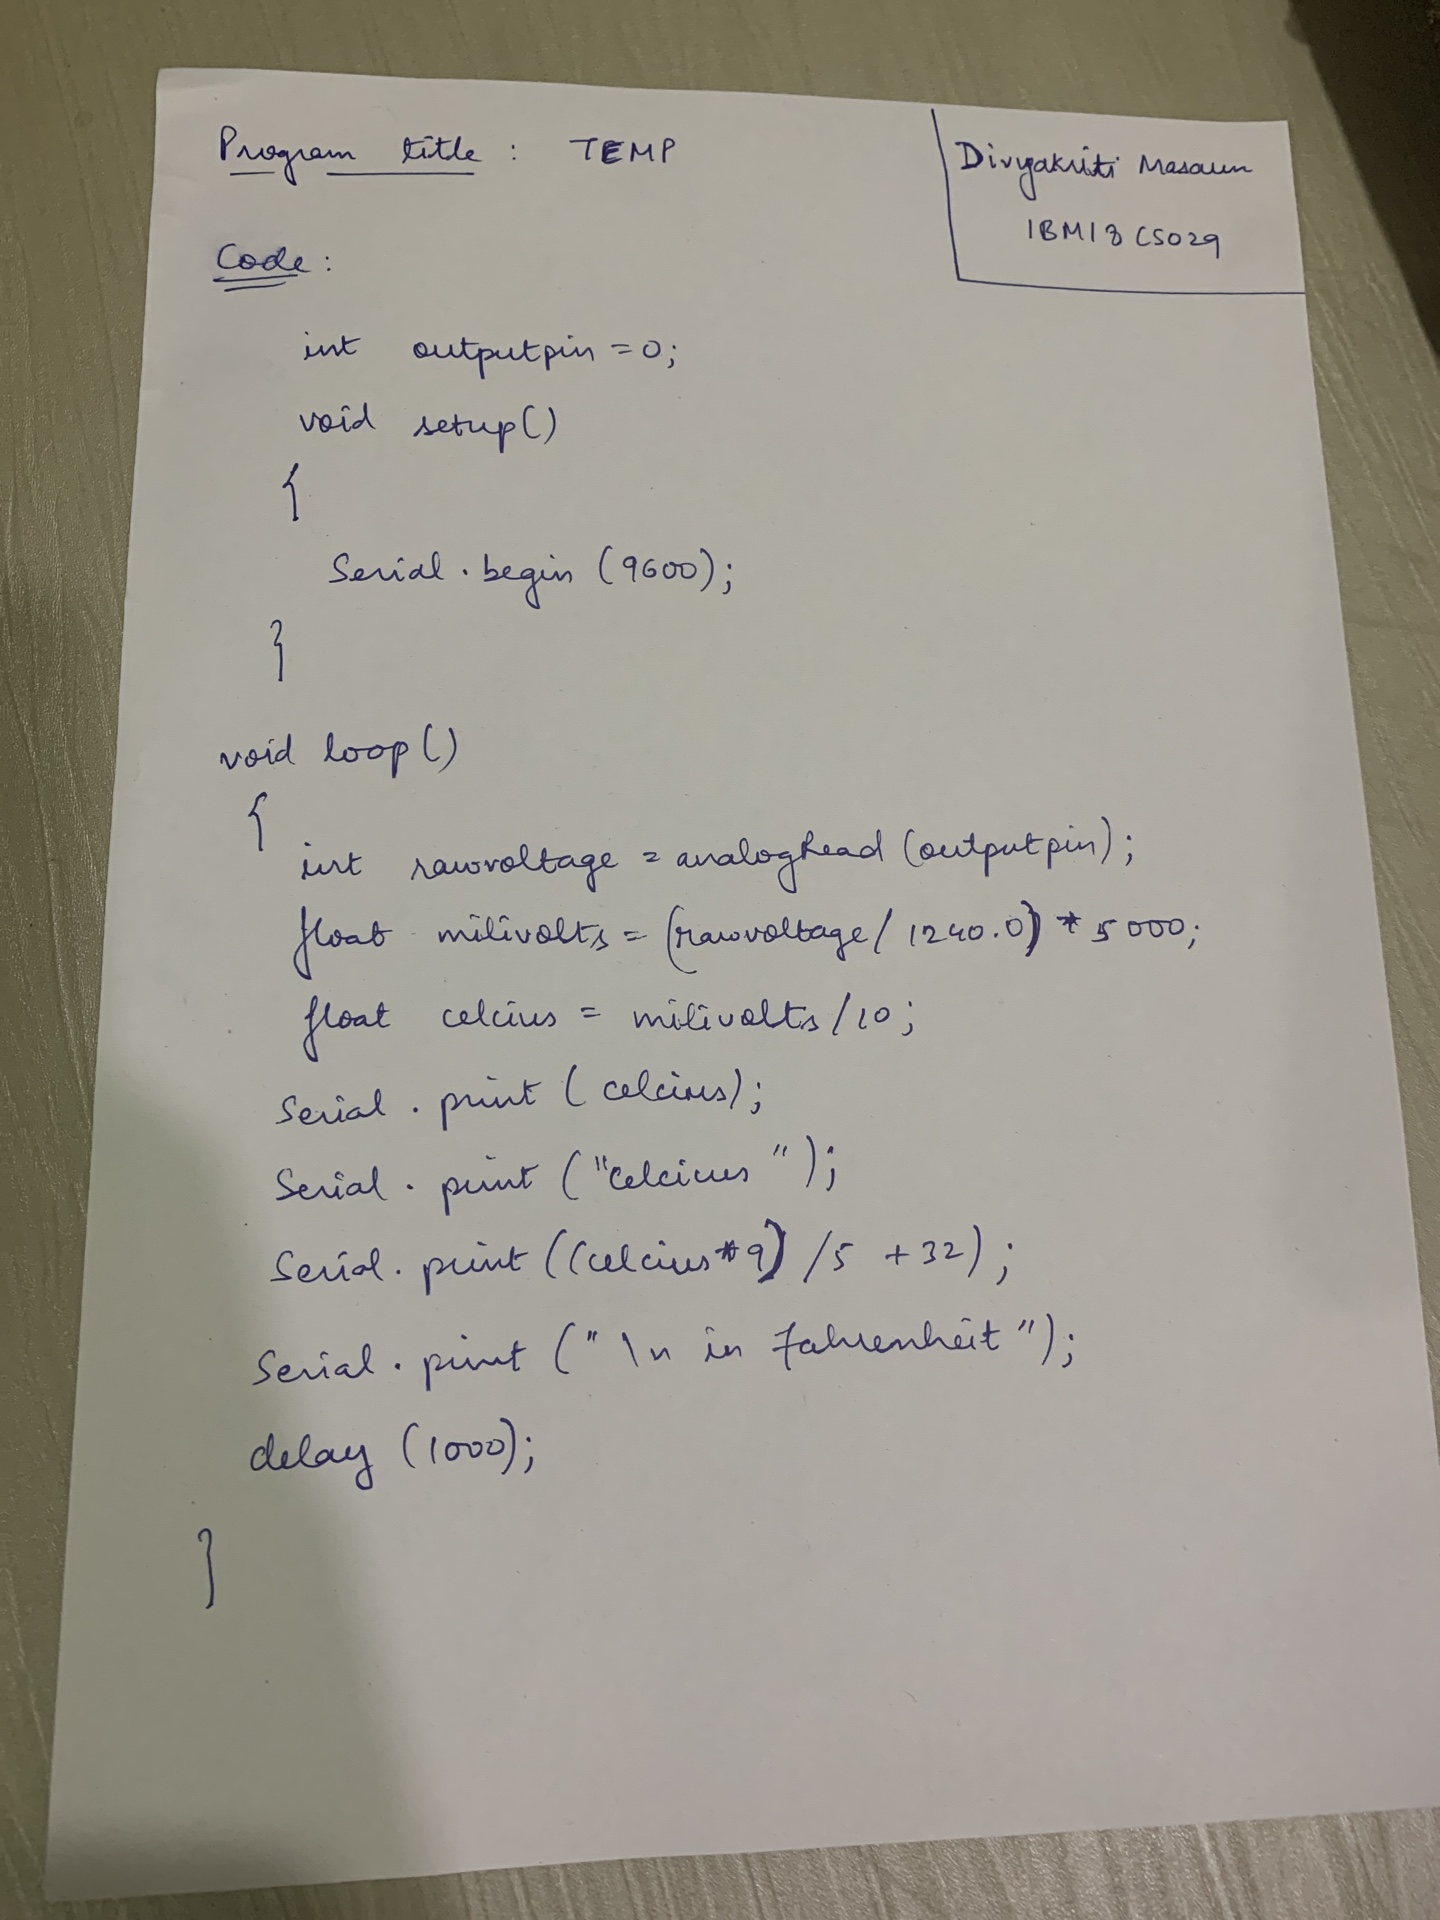 Program title : TEMP
Divyakriti Masaun
1BM18CS029
Code :
int outputpin = 0;
void setup()
{
Serial.begin (9600);
}
void loop()
{
int rawvoltage = analogRead (outputpin);
float milivolts = (rawvoltage / 1240.0) * 5000;
float celcius = milivolts /10;
Serial.print ( celcius);
Serial.print ("celcius ");
Serial.print ((celcius*9) /5 +32);
Serial.print (" \n in Fahrenheit ");
delay (1000);
}